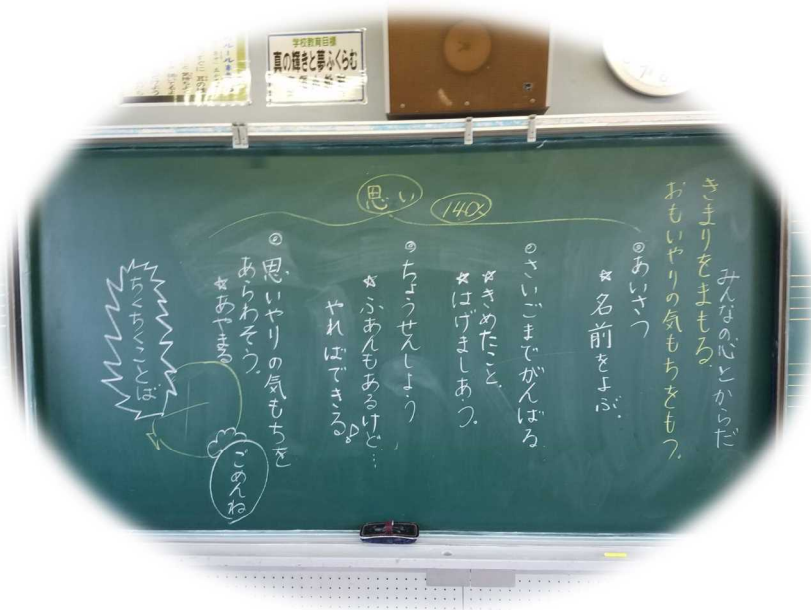 学校教育目標
真の輝きと夢ふくらむ
みんなの心とからだ
きまりをまもる
おもいやりの気もちをもつ。
思い
◎あいさつ
☆名前をよぶ。
◎さいごまでがんばる
☆きめたこと。
☆はげましあう。
◎ちょうせんしよう
☆ふあんもあるけど…
やればできる♪
◎思いやりの気もちを
あらわそう。
☆あやまる
ごめんね
ちくちくことば